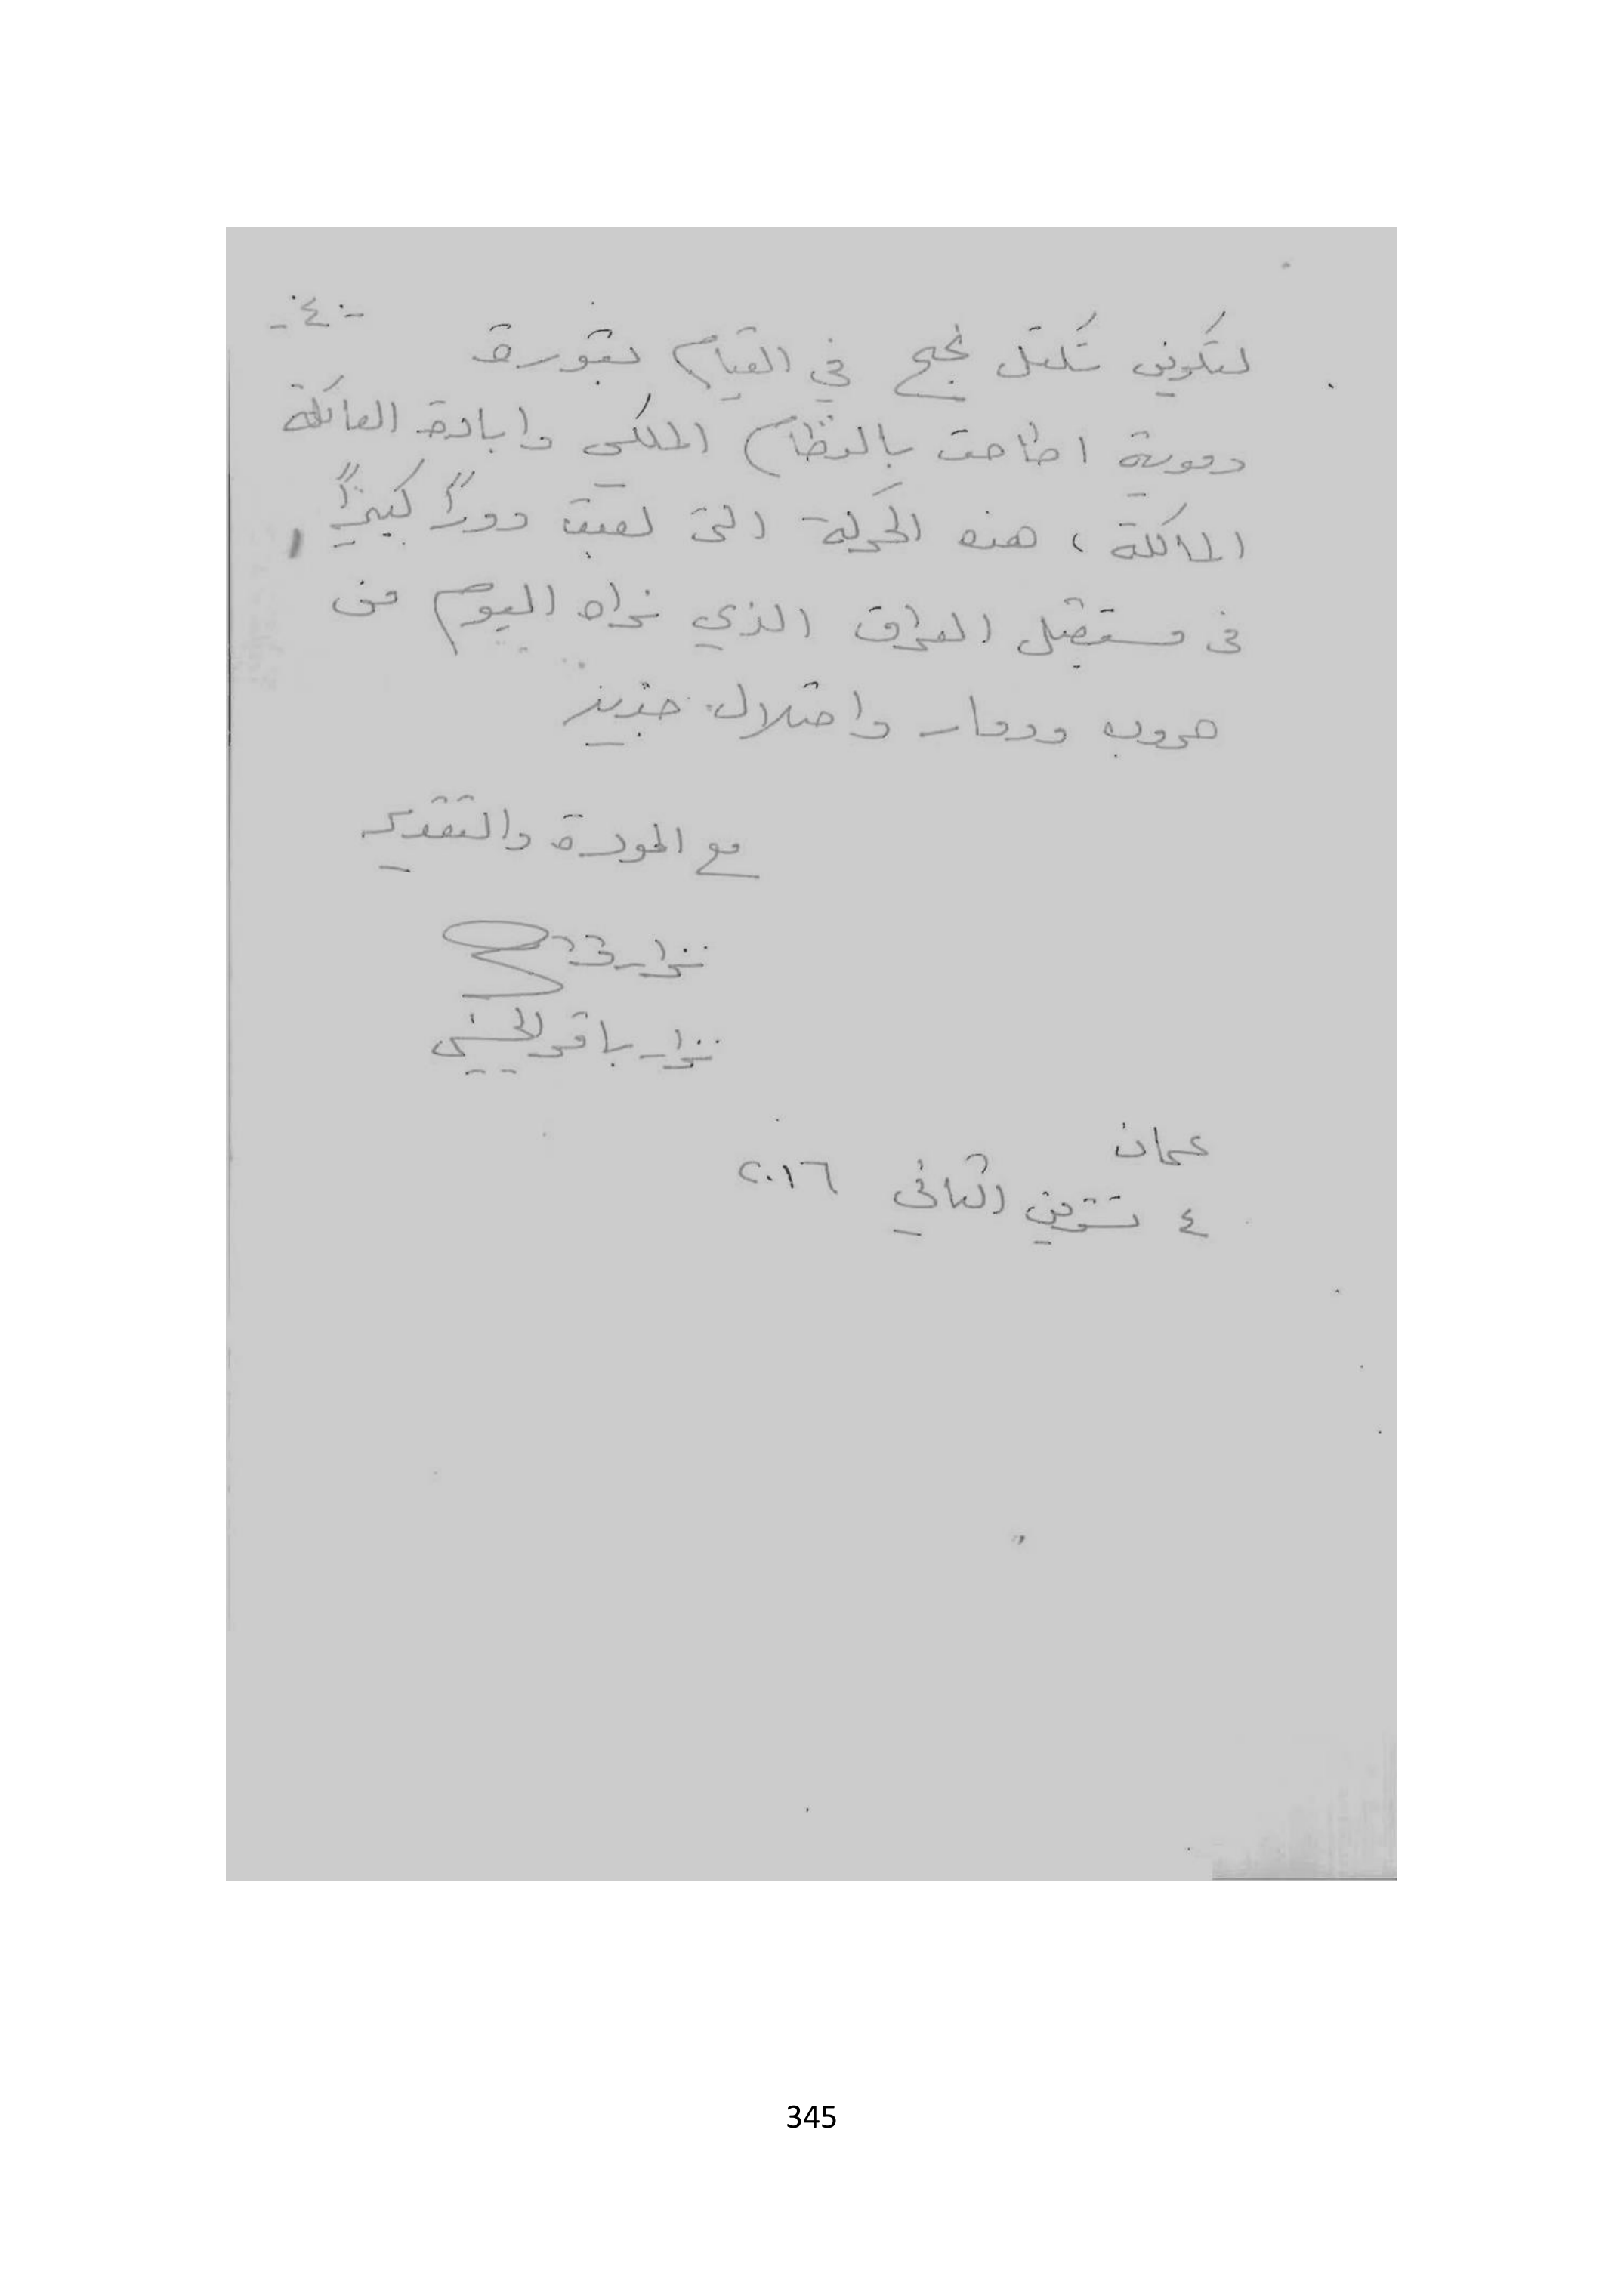 -٤-
لتكوين تكتل نجح في القيام بثورة
دموية اطاحت بالنظام الملكي وابادة العائلة
المالكة ، هذه الحركة التي لعبت دوراً كبيراً
في مستقبل العراق الذي نراه اليوم من
حروب ودمار واحتلال جديد
مع المودة والتقدير
نزار
نزار باقر الحسني
عمان
٤ تشرين الثاني ٢٠١٦
345